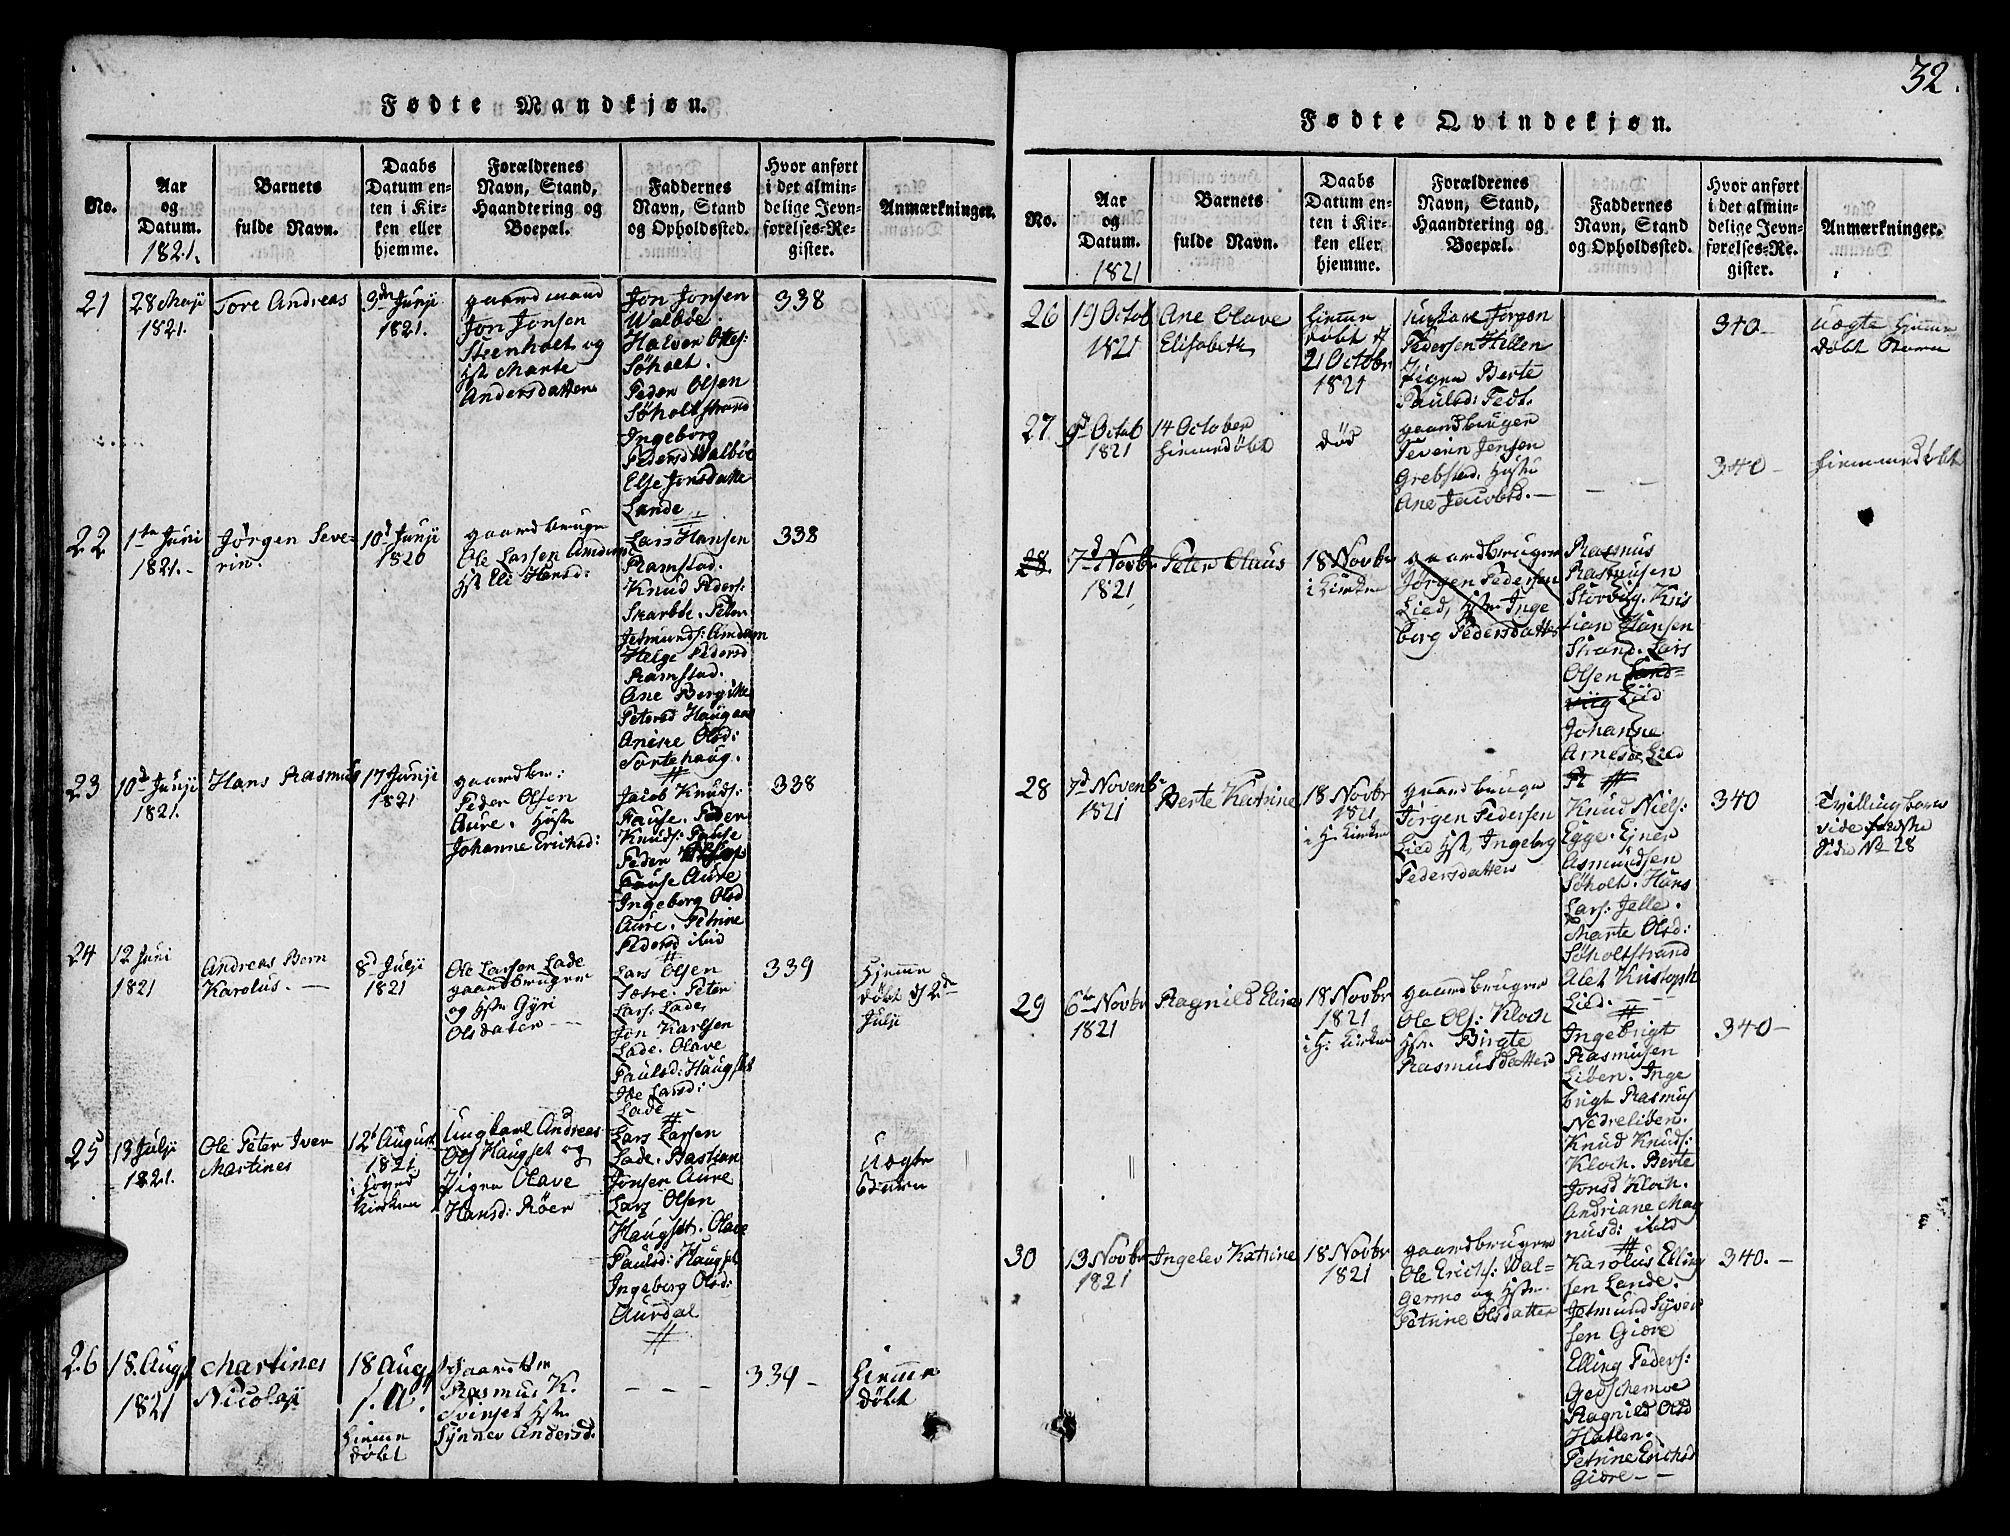 32.
Fødte Mandkjøn.
No.
Aar
og
Datum.
1821.
Barnets
fulde Navn.
Daabs
Datum en-
ten i Kir-
ken eller
hjemme.
Forældrenes
Navn, Stand,
Haandtering og
Boepæl.
Faddernes
Navn, Stand
og Opholdssted.
Hvor anført
i det almin-
delige Jevn-
førelses-Re-
gister.
Anmærkninger.
21
28 Maji
1821.
Tore Andreas
3die Junji
1821.
gaardmand
Jon Jonsen
Steenholt og
Hst Marte
Andersdatter
Jon Jonsen
Walbøe.
Halvor Ottes:
Søholt.
Peder Olsen
Søholtstrand
Ingeborg
Pedersd Walbøe
Else Jonsdatte
Lande
338
22
1ste Juni
1821.-
Jørgen Seve-
rin.
10d Junji
1820
gaardbruge
Ole Larsen Amdam
Hst Eli Hansd:
Lars Hansen
Ramstad.
Knud Peders:
Skarbøe. Peter
Jetmunds: Amdam
Helge Pedersd
Ramstad.
Ane Bergitte
Petersd Haugaas
Anine Olsd:
Tortehaug.
338
23
10d Junji
1821.
Hans Rasmus
17 Junji
1821
gaardbr:
Peder Olsen
Aure. Hustr
Johanne Ericksd:
Jacob Knuds:
Fause. Peder
Knuds: Fause
Peder
Fause Aure
Ingeborg Olsd
Aure. Petrine
Pedersd ibid
338
24
12 Juni
1821
Andreas Bern
Karolus. —
8d Julji
1821
Ole Larsen Lade
gaardbruger
og Hstr Gyri
Olsdater —
Lars Olsen
Sætre. Peter
Lars: Lade,
Jon Karlsen
Lade. Olave
Paulsd: Haugset
Ide Larsd:
Lade
339
Hjemme
døbt d 2de
Julji
25
13 Julji
1821.
Ole Peter Iver
Martines
12t August
1821
i Hoved
Kirken
Ungkarl Andreas
Ols Haugset og
Pigen Olave
Hansd: Røer
Lars Larsen
Lade. Bastian
Jonsen Aure
Lars Olsen
Haugset. Olave
Paulsd: Haugset
Ingeborg Olsd:
Aurdal
Uægte
Barn
26
18. Augst
1821
Martines
Nicolaji
18 Augst
s. A.
Hiemme
døbt
Rasmus K.
Svinset Hstr
Synnev Andersd.
- - -
339 -
Hiemme
døbt
Fødte Qvindekjøn.
No.
Aar
og
Datum.
1821
Barnets
fulde Navn.
Daabs
Datum en-
ten i Kir-
ken eller
hjemme.
Forældrenes
Navn, Stand,
Haandtering og
Boepæl.
Faddernes
Navn, Stand
og Opholdssted.
Hvor anført
i det almin-
delige Jevn-
førelses-Re-
gister.
Anmærkninger.
26
19 Octob
1821
Ane Olave
Elisabeth
Hiemme
døbt d
21 Octobr
1821
Ungkarl Jørgen
Pedersen Hellen
Pigen Berte
Paulsd: Tedt.
340-
Uægte Hjemme
døbt Barn
27
9d Octob
1821
14 October
Hiemmedøbt
død
gaardbruger
Severin Jensen
Grebstad. Hustru
Ane Jacobsd. —
— —
340-
Hiemmedøbt
28.
7d Novbr
1821
Peter Olaus
18 Novbr
i Kirken
gaardbruger
Jørgen Pedersen
Lied, Hstr Inge
borg Pedersdatter
Rasmus
Rasmusen
Storviig. Kris
tian Hansen
Strand. Lars
Olsen Sand-
viig Lied
Johanne
Arnesd Lied
28
7d Novemb
1821
Berte Katrine
18 Novbr
1821
i H: Kirken
gaardbruge
Jørgen Pedersen
Lied Hstr Ingeborg
Pedersdatter
Knud Niels:
Egge. Ejner
Asmundsen
Søholt. Hans
Lars: Jelle.
Marte Olsd:
Søholtstrand
Alet Kristoph
Lied. — —
340
Tvillingbarn
vide første
Side No 28
29
6te Novbr
1821
Ragnild Elise
18 Novbr
1821
i H: Kirken
gaardbruger
Ole Ols: Kloch
Hstr. Birgte
Rasmusdatter
Ingebrigt
Rasmusen
Liøen. Inge
brigt Rasmus
Nedreliøen.
Knud Knuds:
Kloch. Berte
Jonsd Kloch.
Andriane Mag
nusd: ibid
340-
30
13 Novbr
1821
Ingelev Katrine
18 Novbr
1821
gaardbruger
Ole Erichs: Wal-
Germo og Hstr.
Petrine Olsdatter
Karolus Elling
sen Lande.
Jetmund Syver
sen Giøre
Elling Peders:
Gedschemoe
Ragnild Olsd
Hatlen.
Petrine Ericksd
Giøre - -
340. -